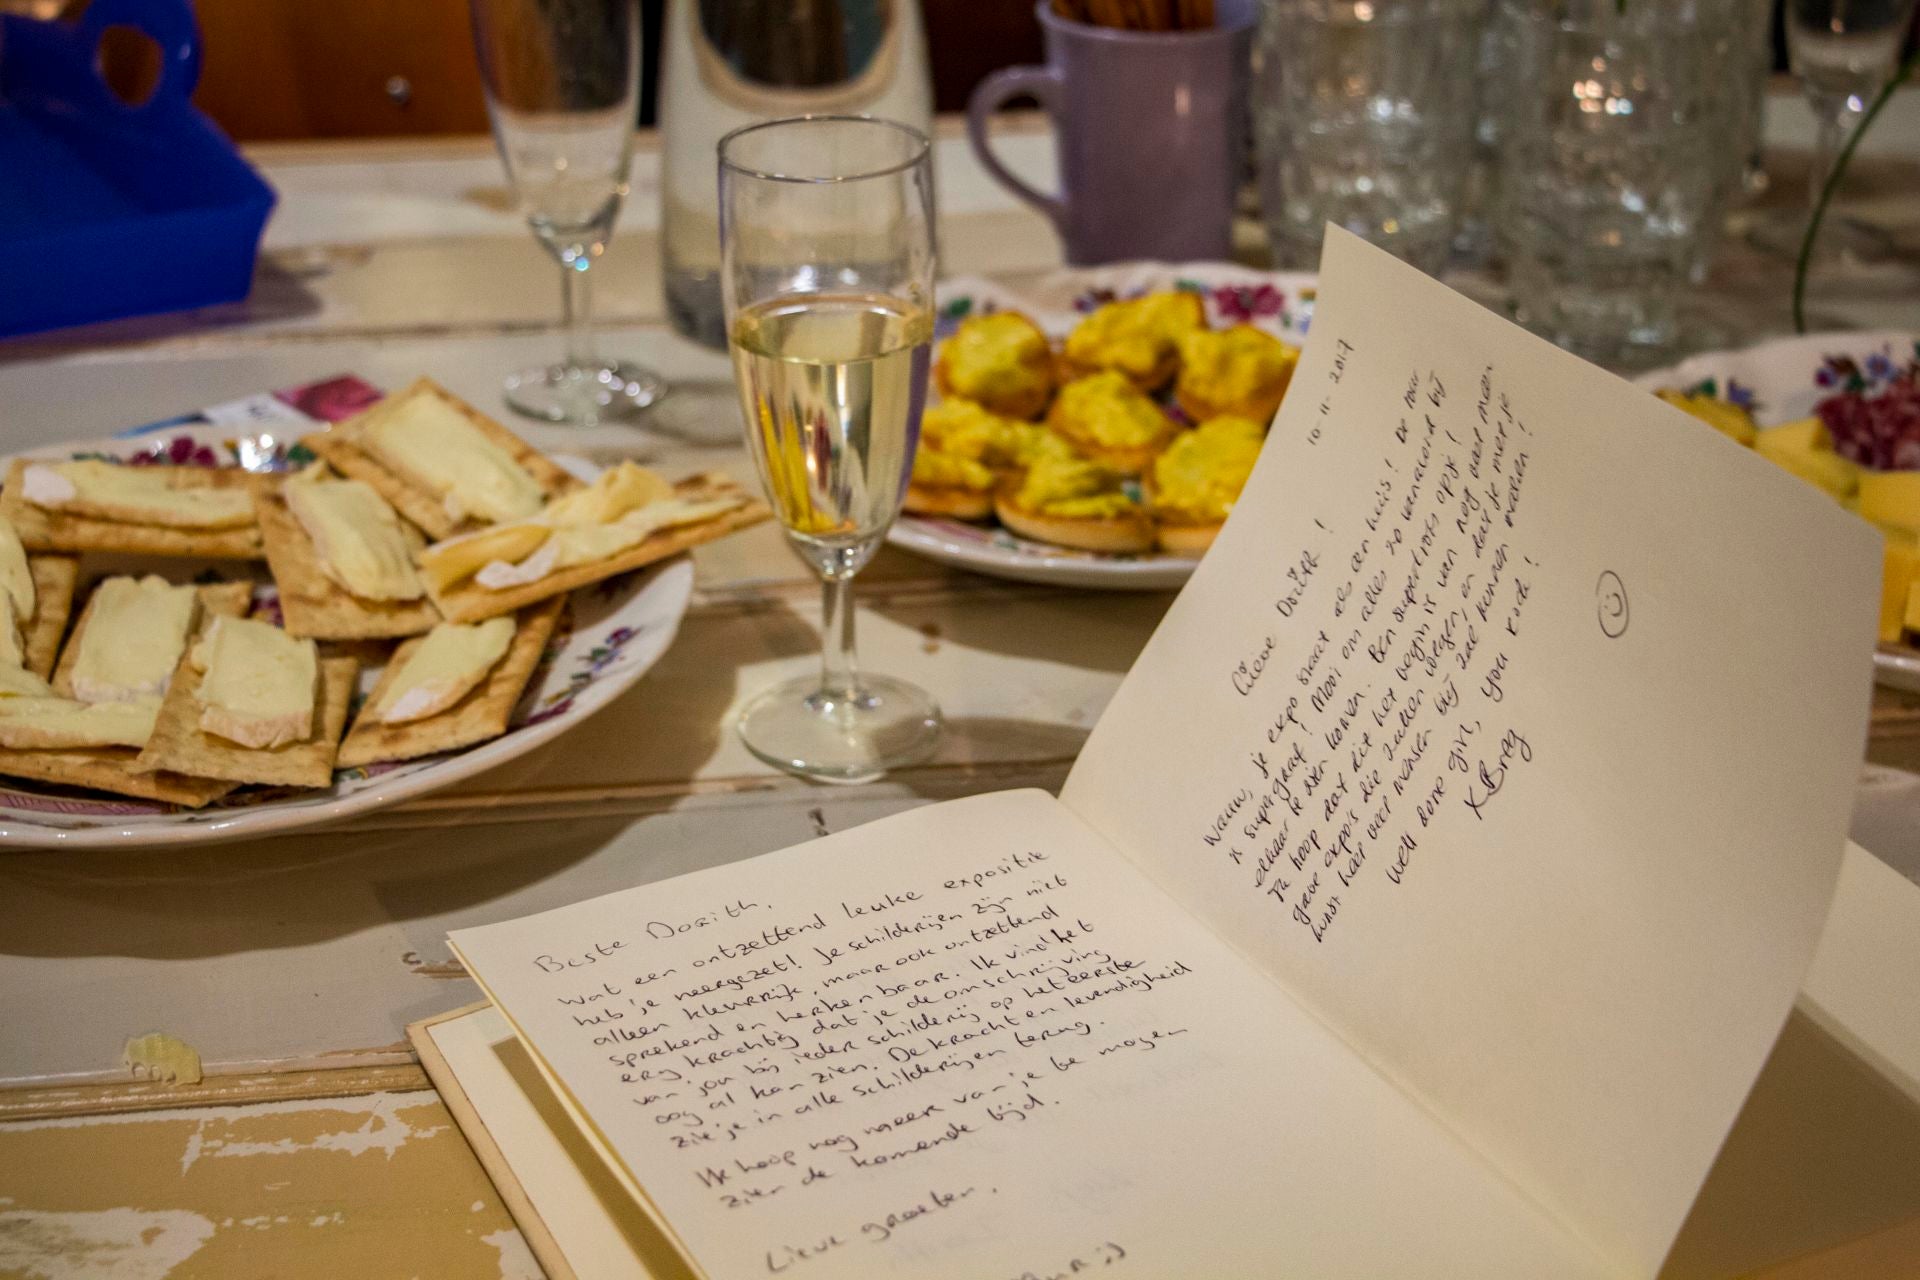 Beste Dorith,
Wat een ontzettend leuke expositie
heb je neergezet! Je schilderijen zijn niet
alleen kleurrijk, maar ook ontzettend
sprekend en herkenbaar. Ik vind het
erg krachtig dat je de omschrijving
van jou bij ieder schilderij op het eerste
oog al kan zien. De kracht en levendigheid
zie je in alle schilderijen terug.
Ik hoop nog meer van je te mogen
zien de komende tijd.
Lieve groeten,
:)
10-11-2017
Lieve Dorith!
Wauw, je expo staat als een huis! De
is super gaaf! Mooi om alles zo vanavond bij
elkaar te zien komen. Ben supertrots op je!
Ik hoop dat dit het begin is van nog vaar meer
gave expo's die zullen volgen en dat je met je
kunst heel veel mensen blij zal kunnen maken!
Well done girl, you rock!
X Breg